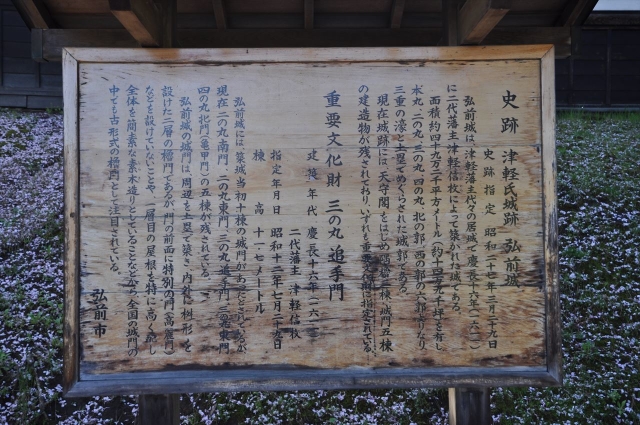 史跡 津軽氏城跡 弘前城
史跡指定 昭和二十七年三月二十九日
弘前城は、津軽藩主代々の居城で、慶長十六年(一六一一)
に二代藩主津軽信枚によって築かれた城である。
面積約四十九万二千平方メートル(約十四万九千坪)を有し
本丸、二の丸、三の丸、四の丸、北の郭、西の郭の六郭から
三重の濠と土塁でめぐらされた城郭である。
現在城跡には、天守閣をはじめ櫓三棟、城門五棟
の建造物が残されており、いずれも重要文化財に指定されている。
重要文化財 三の丸 追手門
建築年代 慶長十六年(一六一一)
二代藩主 津軽信枚
指定年月日 昭和十二年七月二十九日
棟高 十一・七メートル
弘前城には、築城当初十棟の城門があったとされているが、
現在、二の丸南門、二の丸東門、三の丸追手門、三の丸東門
四の丸北門(亀甲門)の五棟が残されている。
弘前城の城門は、周辺を土塁で築き、内側に枡形を
設けた二層の櫓門であるが、門の前面に特別の門(高麗門)
などを設けていないことや、一層目の屋根を特に高く配し
全体を簡素な素木造りとしていることなどから、全国の城門の
中でも古形式の櫓門として注目されている。
弘前市